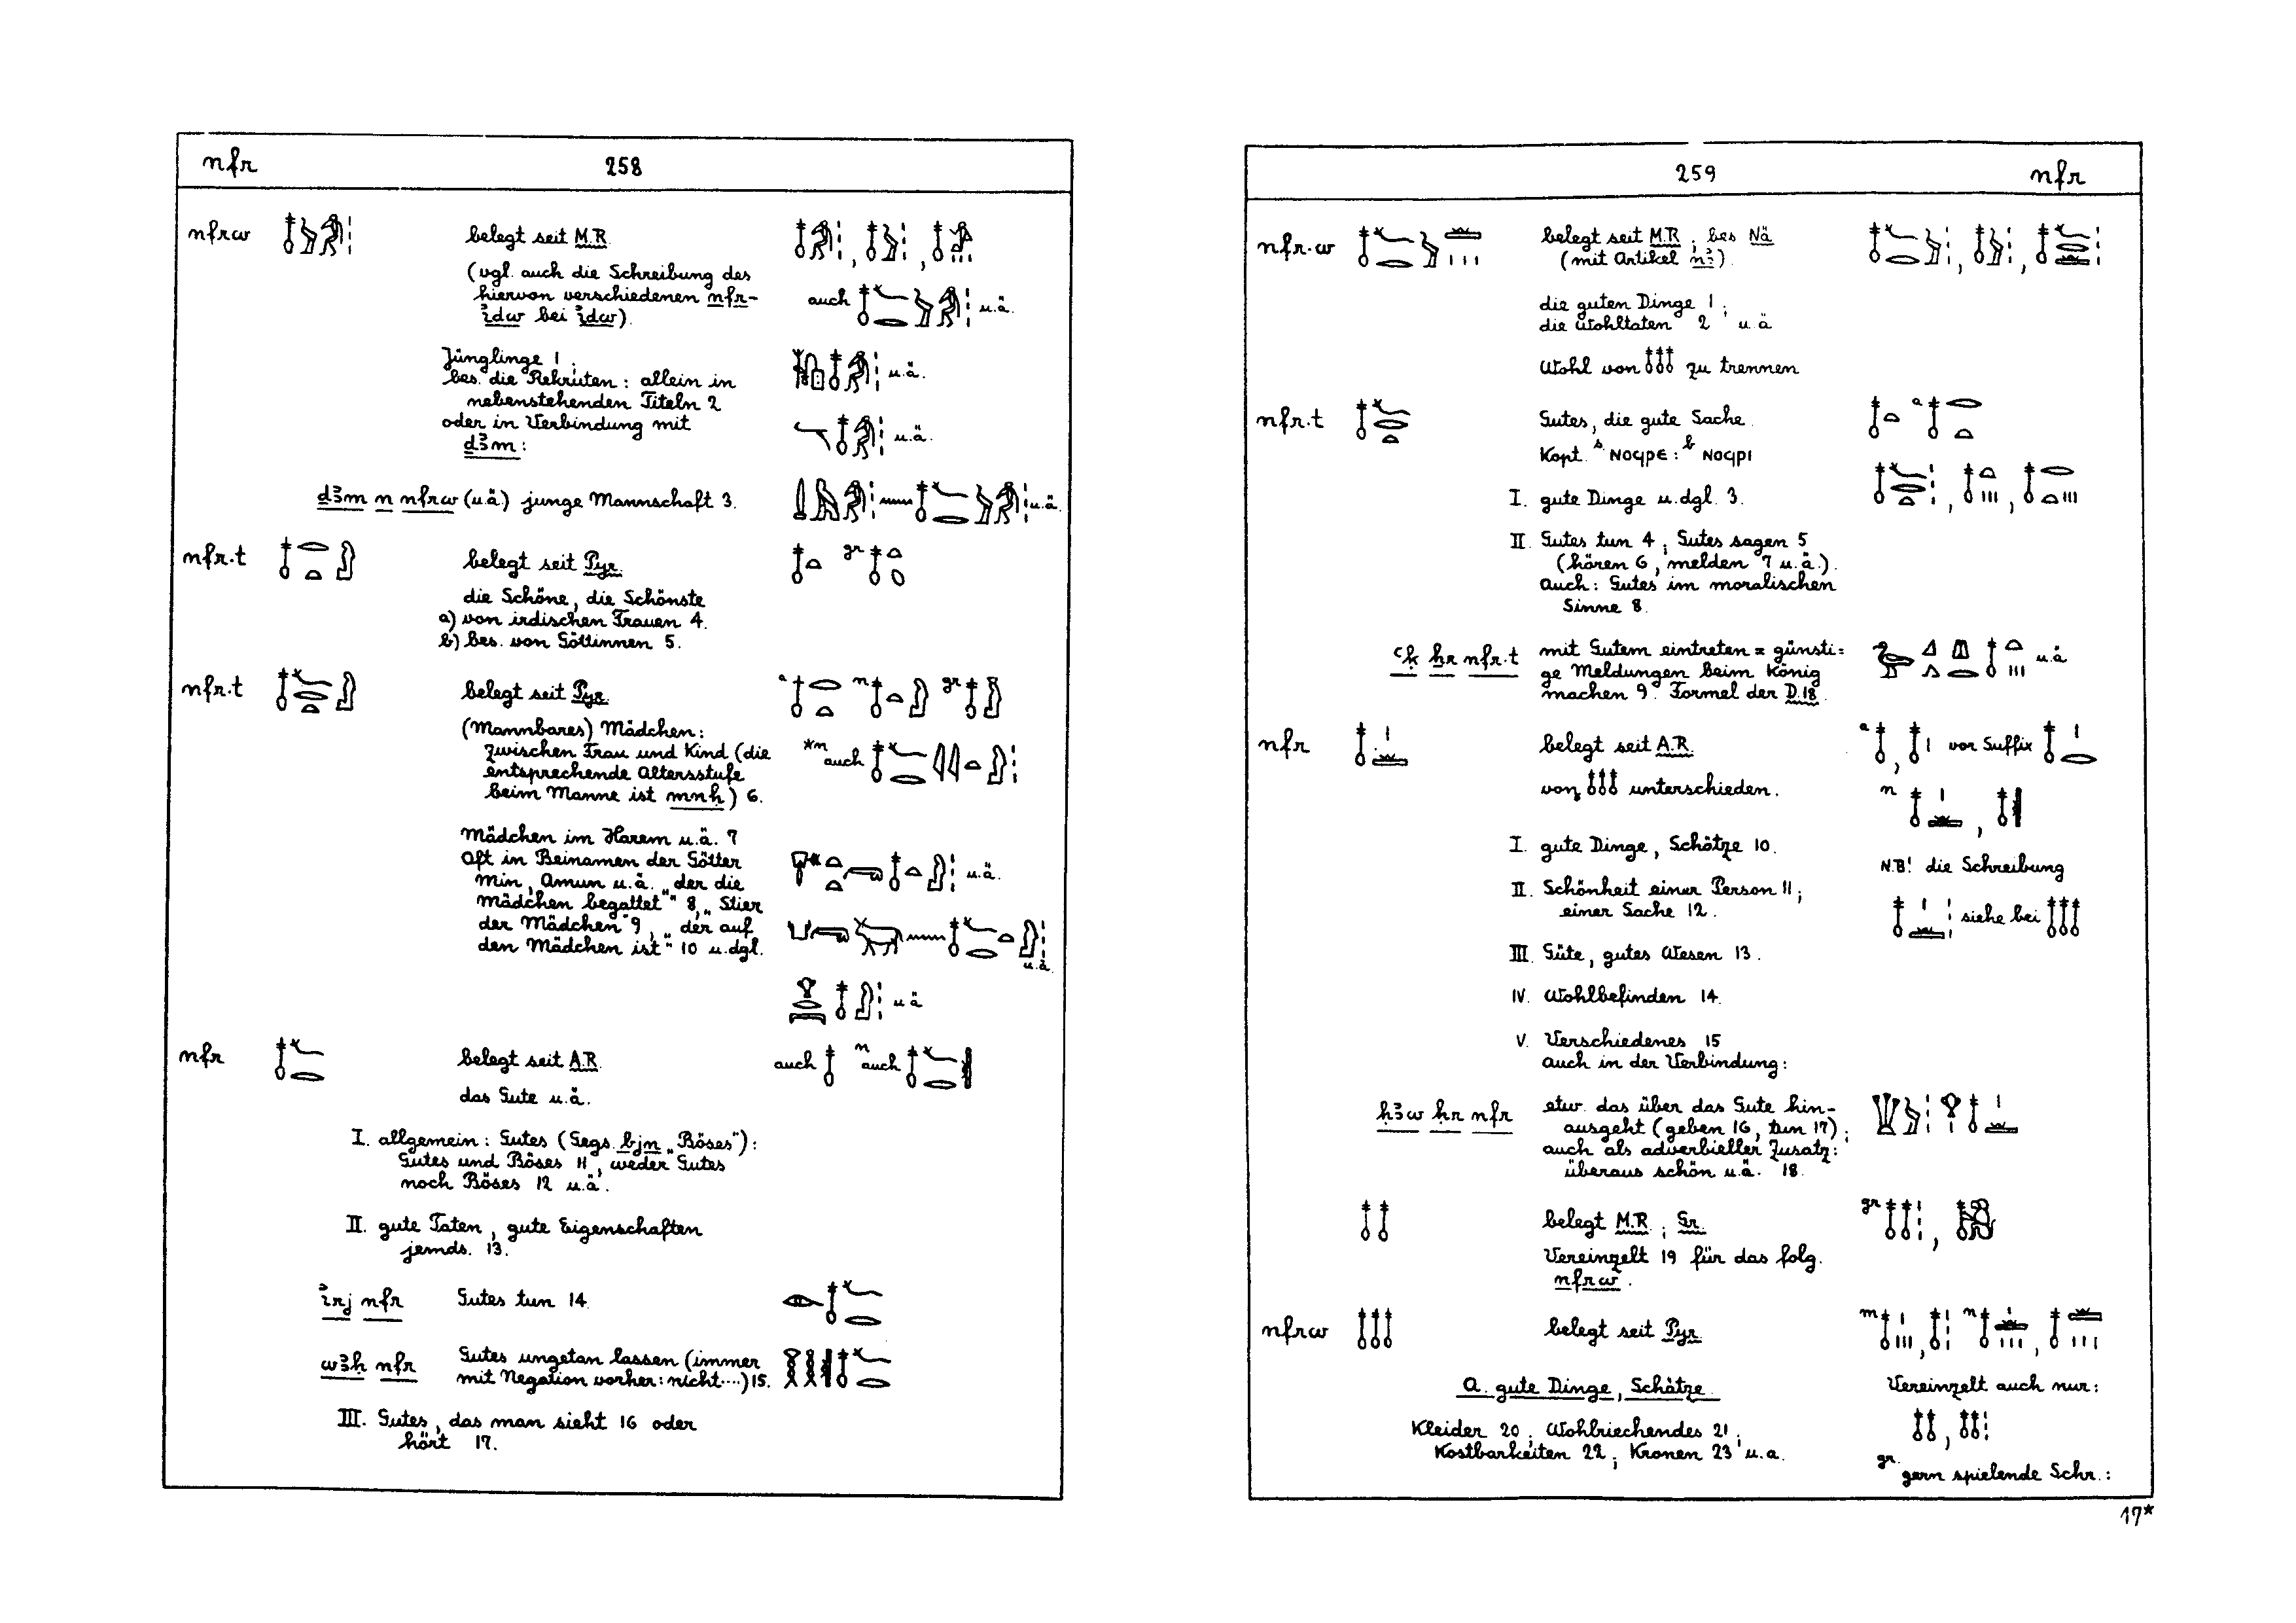 nfr 258
nfrw belegt seit M.R.
(vgl. auch die Schreibung des
hiervon verschiedenen nfr-
ꞽdw bei ꞽdw).
auch u.ä.
Jünglinge 1;
bes. die Rekruten: allein in
nebenstehenden Titeln 2
oder in Verbindung mit
ḏꜣm:
u.ä.
u.ä.
ḏꜣm n nfrw (u.ä.) junge Mannschaft 3. u.ä.
nfr.t belegt seit Pyr. gr
die Schöne, die Schönste
a) von irdischen Frauen 4.
b) bes. von Göttinnen 5.
nfr.t belegt seit Pyr. a n gr
(Mannbares) Mädchen:
zwischen Frau und Kind (die
entsprechende Altersstufe
beim Manne ist mnḥ) 6.
*n auch
Mädchen im Harem u.ä. 7
Oft in Beinamen der Götter
Min, Amun u.ä. „der die
Mädchen begattet" 8, „Stier
der Mädchen" 9, „der auf
den Mädchen ist" 10 u.dgl.
u.ä.
u.ä.
u.ä
nfr belegt seit A.R. auch n auch
das Gute u.ä.
I. allgemein: Gutes (Ggs. bjn „Böses"):
Gutes und Böses 11, weder Gutes
noch Böses 12 u.ä.
II. gute Taten, gute Eigenschaften
jemds. 13.
ꞽrj nfr Gutes tun 14.
wꜣḥ nfr Gutes ungetan lassen (immer
mit Negation vorher: nicht....) 15.
III. Gutes, das man sieht 16 oder
hört 17.
259 nfr
nfr.w belegt seit M.R.; bes. Nä
(mit Artikel nꜣ).
die guten Dinge 1;
die Wohltaten 2 u.ä
Wohl von 𓄤𓄤𓄤 zu trennen
nfr.t Gutes, die gute Sache. a
Kopt. s ⲛⲟϥⲣⲉ: b ⲛⲟϥⲣⲓ
I. gute Dinge u.dgl. 3.
II. Gutes tun 4; Gutes sagen 5
(hören 6, melden 7 u.ä.).
Auch: Gutes im moralischen
Sinne 8.
ꜥḳ ḥr nfr.t mit Gutem eintreten = günsti=
ge Meldungen beim König
machen 9. Formel der D.18.
u.ä
nfr belegt seit A.R. a vor Suffix
von 𓄤𓄤𓄤 unterschieden. n
I. gute Dinge, Schätze 10.
II. Schönheit einer Person 11;
einer Sache 12.
N.B! die Schreibung
siehe bei 𓄤𓄤𓄤
III. Güte, gutes Wesen 13.
IV. Wohlbefinden 14.
V. Verschiedenes 15
auch in der Verbindung:
ḥꜣw ḥr nfr etw. das über das Gute hin-
ausgeht (geben 16, tun 17);
auch als adverbieller Zusatz:
überaus schön u.ä. 18.
𓄤𓄤 belegt M.R.; Gr. gr
Vereinzelt 19 für das folg.
nfrw.
nfrw 𓄤𓄤𓄤 belegt seit Pyr. m n
A. gute Dinge, Schätze.
Vereinzelt auch nur:
Kleider 20; Wohlriechendes 21;
Kostbarkeiten 22; Kronen 23 u.a.
gr. gern spielende Schr.:
17*